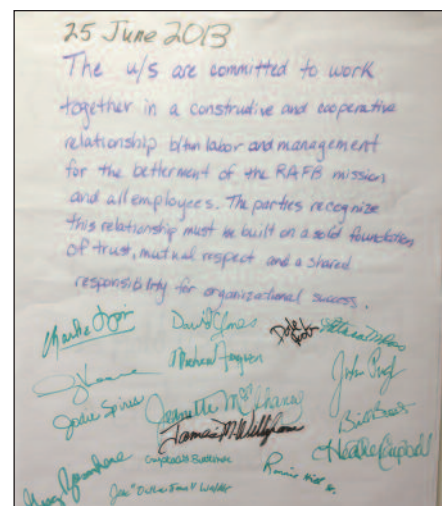 25 June 2013
The u/s are committed to work
together in a constructive and cooperative
relationship b/twn labor and management
for the betterment of the RAFB mission
and all employees. The parties recognize
this relationship must be built on a solid foundation
of trust, mutual respect and a shared
responsibility for organizational success.
Charlie
David Jones
Michael Ferguson
Jodie Spires
Jeanette McElhaney
James M.
Heather Campbell
Ronnie Hill Sr.
Joe